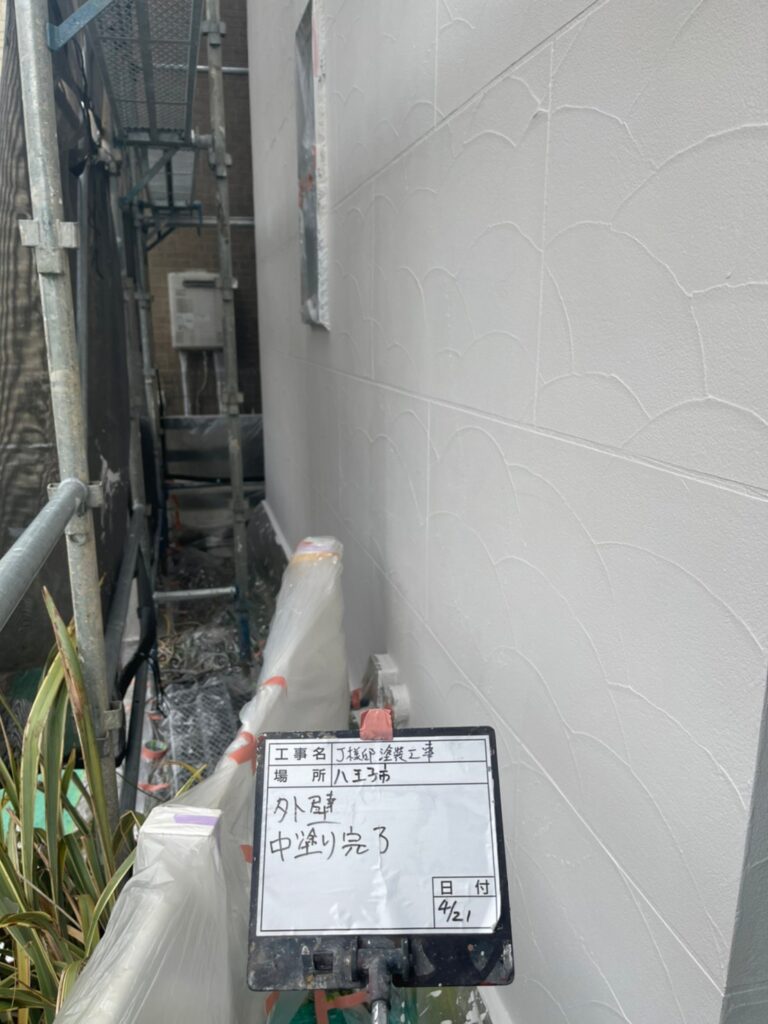 工事名 J様邸塗装工事
場所 八王子市
外壁
中塗り完了
日付
4/21